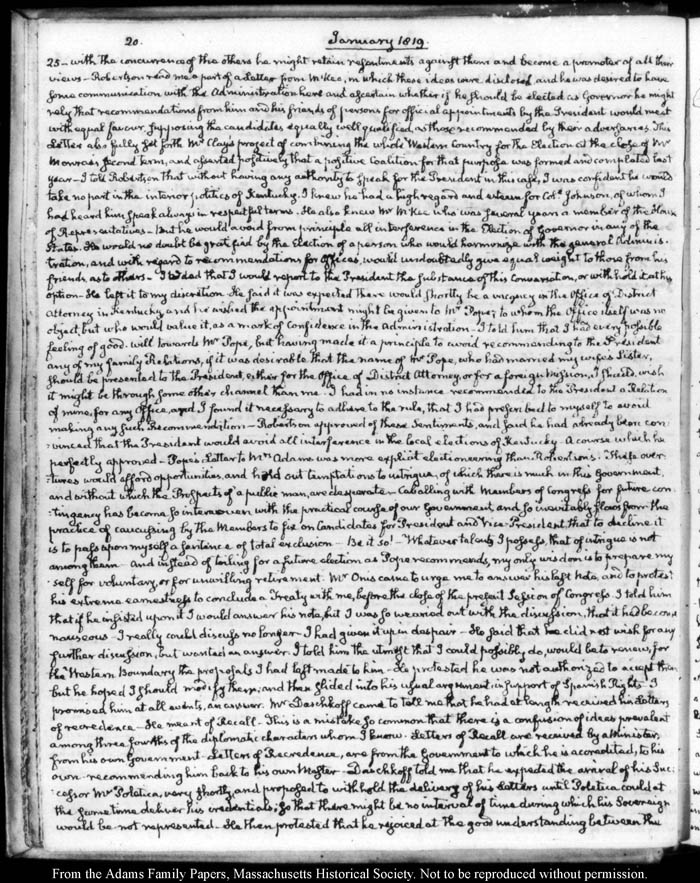 20. January 1819.
25 – with the concurrence of the others he might retain resentments against them and become a promoter of all their
views – Robertson read me a part of a Letter from McKee, in which these ideas were disclosed, and he was desired to have
some communication with the Administration here and ascertain whether if he should be elected as Governor he might
rely that recommendations from him and his friends of persons for official appointments by the President would meet
with equal favour, supposing the candidates equally well qualified, as those recommended by their adversaries. This
Letter also fully set forth Mr Clay's project of combining the whole Western Country for the Election at the close of Mr
Monroe's second term, and asserted positively that a positive Coalition for that purpose was formed and completed last
year – I told Robertson that without having any authority to speak for the President in this case, I was confident he would
take no part in the interior politics of Kentucky. I knew he had a high regard and esteem for Coll. Johnson, of whom I
had heard him speak always in respectful terms. He also knew Mr McKee who was several years a member of the House
of Representatives – But he would avoid from principle all interference in the Election of Governor in any of the
States. He would no doubt be gratified by the Election of a person who would harmonize with the general Adminis-
tration, and with regard to recommendations for Offices, would undoubtedly give equal weight to those from his
friends as to others – I added that I would report to the President the substance of this Conversation, or withhold it at his
option – He left it to my discretion. He said it was expected there would shortly be a vacancy in the Office of District
Attorney in Kentucky, and he wished the appointment might be given to Mr Pope; to whom the Office itself was no
object, but who would value it, as a mark of Confidence in the Administration – I told him that I had every possible
feeling of good-will towards Mr Pope, but having made it a principle to avoid recommending to the President
any of my family Relations, if it was desirable that the name of Mr Pope, who had married my wife's Sister,
should be presented to the President, either for the Office of District Attorney, or for a foreign mission, I should wish
it might be through some other channel than me – I had in no instance recommended to the President a Relation
of mine, for any Office, and I found it necessary to adhere to the rule, that I had prescribed to myself to avoid
making any such Recommendation – Robertson approved of these Sentiments, and said he had already been con-
vinced that the President would avoid all interference in the local elections of Kentucky – A course which he
perfectly approved – Pope's Letter to Mrs Adams was more explicit electioneering than Robertson's. These over-
tures would afford opportunities, and hold out temptations to intrigue, of which there is much in this Government,
and without which the Prospects of a public man, are desperate – Caballing with Members of Congress for future con-
tingency has become so interwoven with the practical course of our Government, and so inevitably flows from the
practice of caucussing by the Members to fix on Candidates for President and Vice-President, that to decline it
is to pass upon myself a sentence of total exclusion – Be it so! – Whatever talents I possess, that of intrigue is not
among them – And instead of toiling for a future election as Pope recommends, my only wisdom is to prepare my-
self for voluntary, or for unwilling retirement. Mr Onis came to urge me to answer his last Note, and to protest
his extreme earnestness to conclude a Treaty with me, before the close of the present Session of Congress. I told him
that if he insisted upon it I would answer his note, but I was so wearied out with the discussion, that it had become
nauseous – I really could discuss no longer – I had given it up in despair – He said that he did not wish for any
further discussion, but wanted an answer. I told him the utmost that I could possibly do, would be to renew, for
the Western Boundary the proposals I had last made to him – He protested he was not authorized to accept them
but he hoped I should modify them; and then glided into his usual argument in support of Spanish Rights – I
promised him at all events, an answer. Mr Daschkoff came to tell me that he had at length received his letters
of recredence – He meant of Recall – This is a mistake so common that there is a confusion of ideas prevalent
among three fourths of the diplomatic characters whom I know. Letters of Recall are received by a Minister,
from his own Government – Letters of Recredence, are from the Government to which he is accredited, to his
own – recommending him back to his own Master – Daschkoff told me that he expected the arrival of his Suc-
cessor Mr Poletica, very shortly, and proposed to withhold the delivery of his letters until Poletica could at
the same time deliver his credentials; so that there might be no interval of time during which his Sovereign
would be not represented – He then protested that he rejoiced at the good understanding between the
From the Adams Family Papers, Massachusetts Historical Society. Not to be reproduced without permission.